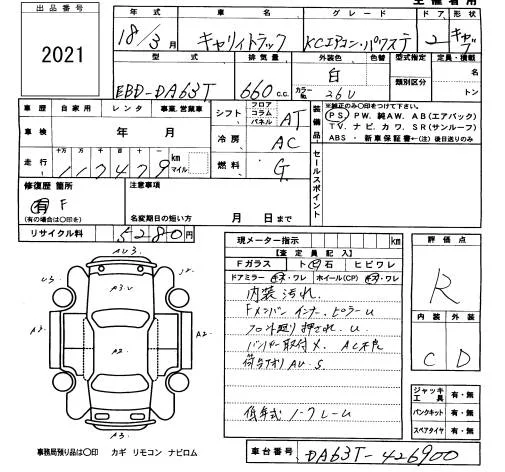 主催者用
出品番号
2021
年式 車名 グレード ドア 形状
18/3月 キャリィトラック KCエアコン・パワステ 2 キャブ
型式 排気量 外装色 色替 型式指定 定員・積載
EBD-DA63T 660 c.c. 白 カラーNo. 26U 類別区分 名 トン
車歴 自家用 レンタ 事業、営業車
車検 年 月
走行 十万 万 117479 km マイル
シフト フロア コラム パネル AT
冷房 AC
燃料 G
装備品 ※純正のみ○印をつけて下さい。
PS PW. 純AW. AB(エアバック)
TV. ナビ. カワ. SR(サンルーフ)
ABS ・新車保証書←(注)後日送りのみ
セールスポイント
修復歴 箇所
有 F
(有の場合は○印を)
注意事項
名変期日の短い方 月 日まで
リサイクル料 5280円
現メーター指示 km
【査定員記入】
Fガラス ト・石 ヒビワレ
ドアミラー キズ・ワレ ホイール(CP) キズ・ワレ
内装汚れ.
Fメンバー インナー. ピラー U
フロア廻り押され. U
バンパー取付×. AC不良
荷台廻り AU.S.
低年式ノークレーム
評価点
R
内装 外装
C D
ジャッキ工具 有・無
パンクキット 有・無
スペアタイヤ 有・無
AU3.
A3.U
A3
A2.
A2.
A3.
事務局預り品は○印 カギ リモコン ナビロム
車台番号 DA63T-426900